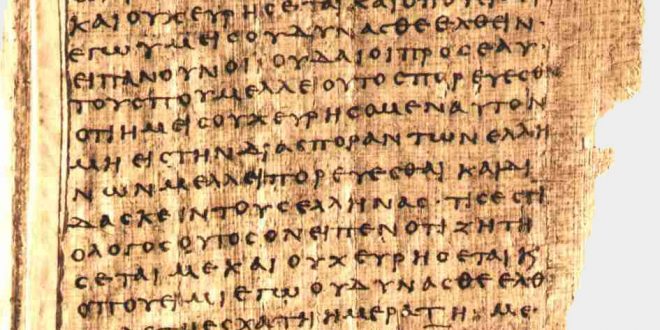 ΚΑΙΟΥΧΕΥΡΗϹΕΤΑΙΚΑΙΟΠΟΥ
ΕΓΩΥΜΕΙϹΟΥΔΥΝΑϹΘΕΕΛΘΕΙΝ·
ΕΙΠΑΝΟΥΝΟΙΙΟΥΔΑΙΟΙΠΡΟϹΕΑΥ
ΤΟΥϹΠΟΥΜΕΛΛΕΙΟΥΤΟϹΠΟΡΕΥΕϹΘΑΙ
ΟΤΙΗΜΕΙϹΟΥΧΕΥΡΗϹΟΜΕΝΑΥΤΟΝ
ΜΗΕΙϹΤΗΝΔΙΑϹΠΟΡΑΝΤΩΝΕΛΛΗ
ΝΩΝΜΕΛΛΕΙΠΟΡΕΥΕϹΘΑΙΚΑΙΔΙ
ΔΑϹΚΕΙΝΤΟΥϹΕΛΛΗΝΑϹ·ΤΙϹΕϹΤΙ
ΟΛΟΓΟϹΟΥΤΟϹΟΝΕΙΠΕΝΟΤΙΖΗΤΗ
ϹΕΤΑΙΜΕΚΑΙΟΥΧΕΥΡΗϹΕΤΑΙΚ
ΟΠΟΥΕΙΜΙΕΓΩΟΥΔΥΝΑϹΘΕΕΛΘ
ΕϹΧΑΤΗΗΜΕΡΑΤΗΜΕ